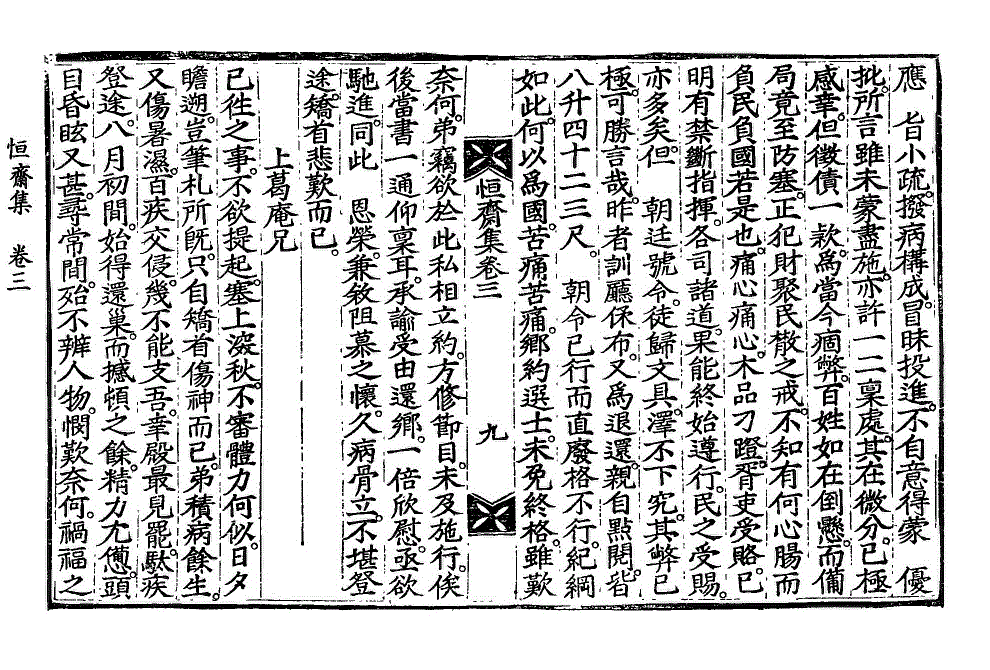 應　旨小疏。撥病構成。冒昧投進。不自意得蒙　優
批。所言雖未蒙盡施。亦許一二稟處。其在微分。已極
感幸。但徵債一款。爲當今痼弊。百姓如在倒懸。而備
局竟至防塞。正犯財聚民散之戒。不知有何心腸而
負民負國若是也。痛心痛心。木品刁蹬。胥吏受賂。已
明有禁斷指揮。各司諸道。果能終始遵行。民之受賜。
亦多矣。但　朝廷號令。徒歸文具。澤不下究。其弊已
極。可勝言哉。昨者訓廳係布。又爲退還。親自點閱。皆
八升四十二三尺。　朝令已行而直廢格不行。紀綱
如此。何以爲國。苦痛苦痛。鄕約選士。未免終格。雖歎
恒齋集卷三　九
奈何。弟竊欲於此私相立約。方修節目。未及施行。俟
後當書一通仰稟耳。承諭受由還鄕。一倍欣慰。亟欲
馳進同此　恩榮。兼敘阻慕之懷。久病骨立。不堪登
途。矯首悲歎而已。
上葛庵兄
已往之事。不欲提起。塞上深秋。不審體力何似。日夕
瞻遡。豈筆札所旣。只自矯首傷神而已。弟積病餘生。
又傷暑濕。百疾交侵。幾不能支吾。幸殿最見罷。馱疾
登途。八月初間。始得還巢。而撼頓之餘。精力尤憊。頭
目昏眩又甚。尋常間。殆不辨人物。憫歎奈何。禍福之
恒齋集　卷三